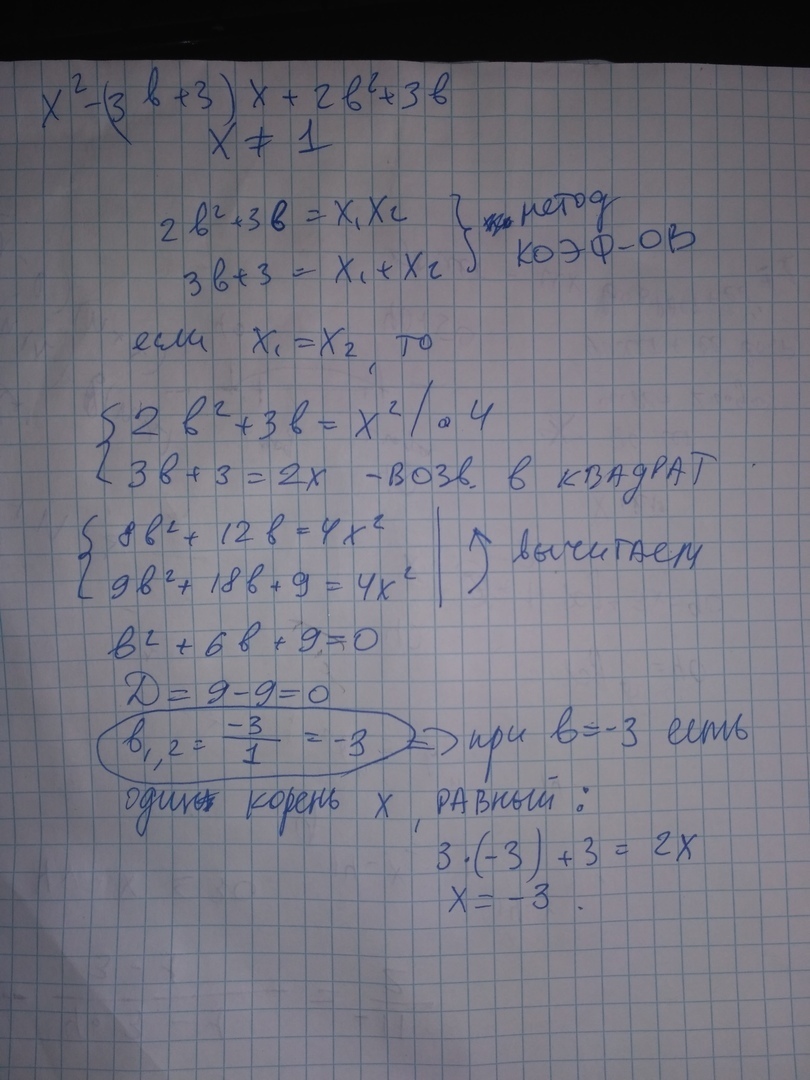 x² - (3в + 3) x + 2в² + 3в
x ≠ 1
2в² + 3в = x₁x₂ } метод
3в + 3 = x₁ + x₂ } КОЭФ-ОВ
если x₁ = x₂, то
{ 2в² + 3в = x² / • 4
{ 3в + 3 = 2x - ВОЗВ. в КВАДРАТ
{ 8в² + 12в = 4x² | вычитаем
{ 9в² + 18в + 9 = 4x² |
в² + 6в + 9 = 0
D = 9 - 9 = 0
в₁,₂ = -3/1 = -3 => при в = -3 есть
один корень x, РАВНЫЙ:
3 · (-3) + 3 = 2x
x = -3.